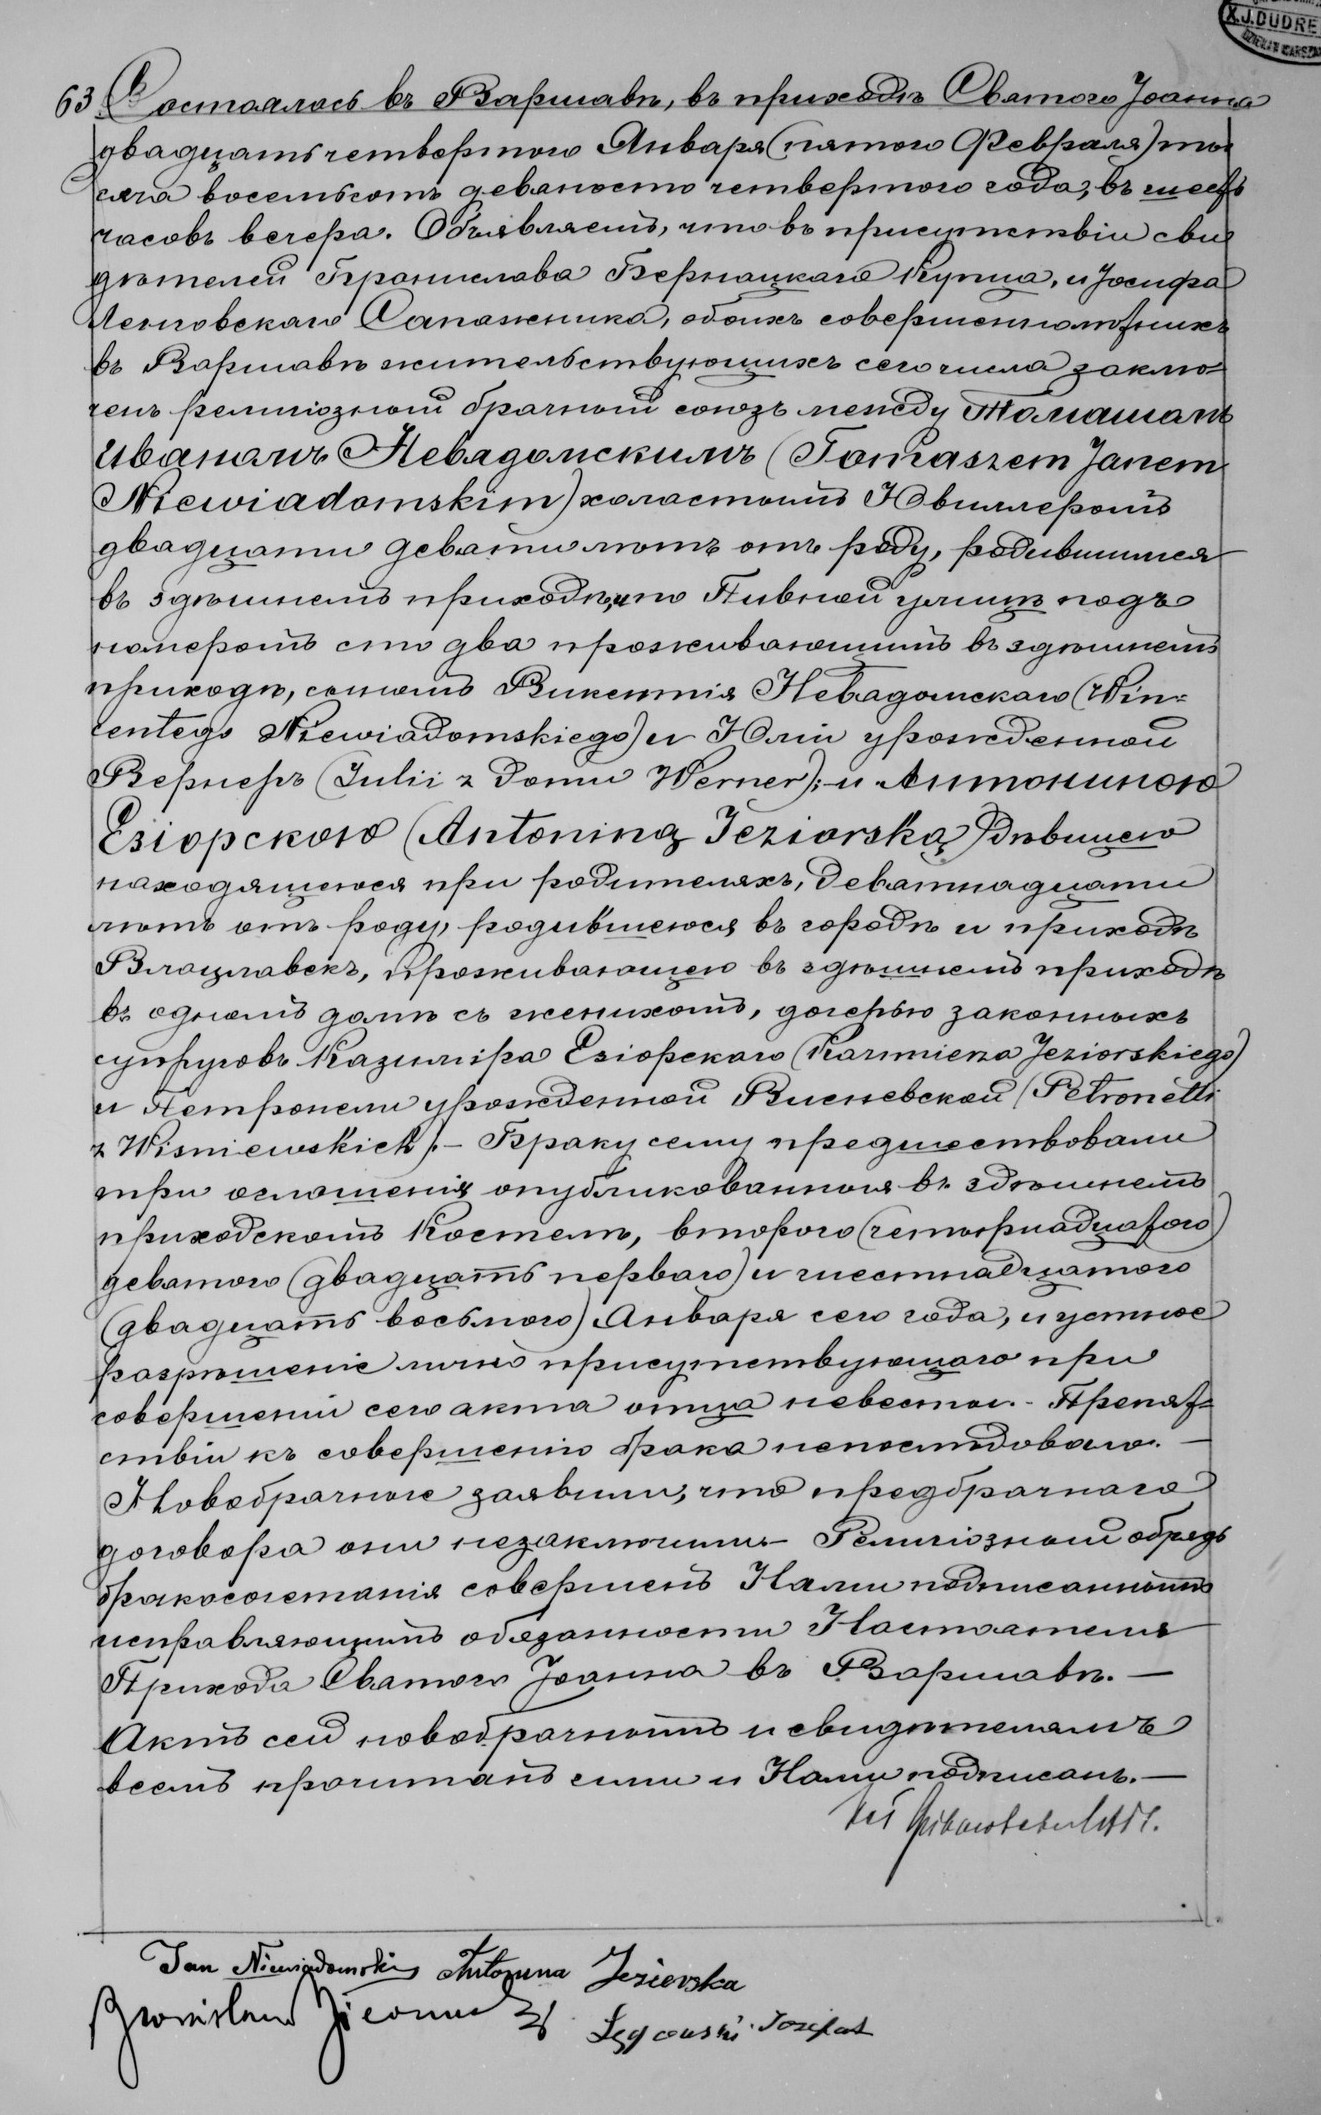 X.J.DUDRE
63 Состоялось въ Варшавѣ, въ приходѣ Святого Іоанна
двадцать четвертого Января (пятого Февраля) ты
сяча восемьсотъ девяносто четвертого года, въ шесть
часовъ вечера. Объявляемъ, что въ присутствіи сви
дѣтелей Бронислава Бернацкаго Купца, и Іосифа
Ленговскаго Сапожника, обоихъ совершеннолѣтнихъ
въ Варшавѣ жительствующихъ сего числа заклю=
ченъ религіозный брачный союзъ между Томашамъ
Иваномъ Невядомскимъ (Tomaszem Janem
Niewiadomskim) холостымъ Ювилеромъ
двадцати девяти лѣтъ отъ роду, родившимся
въ здѣшнемъ приходѣ, и по Пивной улицѣ подъ
номеромъ сто два проживающимъ въ здѣшнемъ
приходѣ, сыномъ Викентія Невядомскаго (Win=
centego Niewiadomskiego) и Юліи урожденной
Вернеръ (Julii z domu Werner); и Антониною
Езіорскою (Antoniną Jeziorską) дѣвицею
находящеюся при родителяхъ, девятнадцати
лѣтъ отъ роду, родившеюся въ городѣ и приходѣ
Влоцлавекъ, проживающею въ здѣшнемъ приходѣ
въ одномъ домѣ съ женихомъ, дочерью законныхъ
супруговъ Казиміра Езіорскаго (Kazimierza Jeziorskiego)
и Петронели урожденной Висневской (Petronelli
z Wisniewskich).— Браку сему предшествовали
три оглошенія опубликованныя въ здѣшнемъ
приходскомъ Костелѣ, второго (четырнадцатого)
девятого (двадцать перваго) и шестнадцатого
(двадцать восьмого) Января сего года, и устное
разрѣшеніе лично присутствующаго при
совершеніи сего акта отца невесты.- Препят=
ствіи къ совершенію брака непослѣдовало. —
Новобрачные заявили, что предбрачнаго
договора они незаключили— Религіозный обрядъ
бракосочетанія совершенъ Нами подписаннымъ
исправляющимъ обязанности Настоятеля
Прихода Святого Іоанна въ Варшавѣ.—
Актъ сей новобрачнымъ и свидѣтелямъ
всемъ прочитанъ ими и Нами подписанъ.—
Jan Niewiadomski Antonina Jeziorska
Bronisław
Łęgowski Jozefat